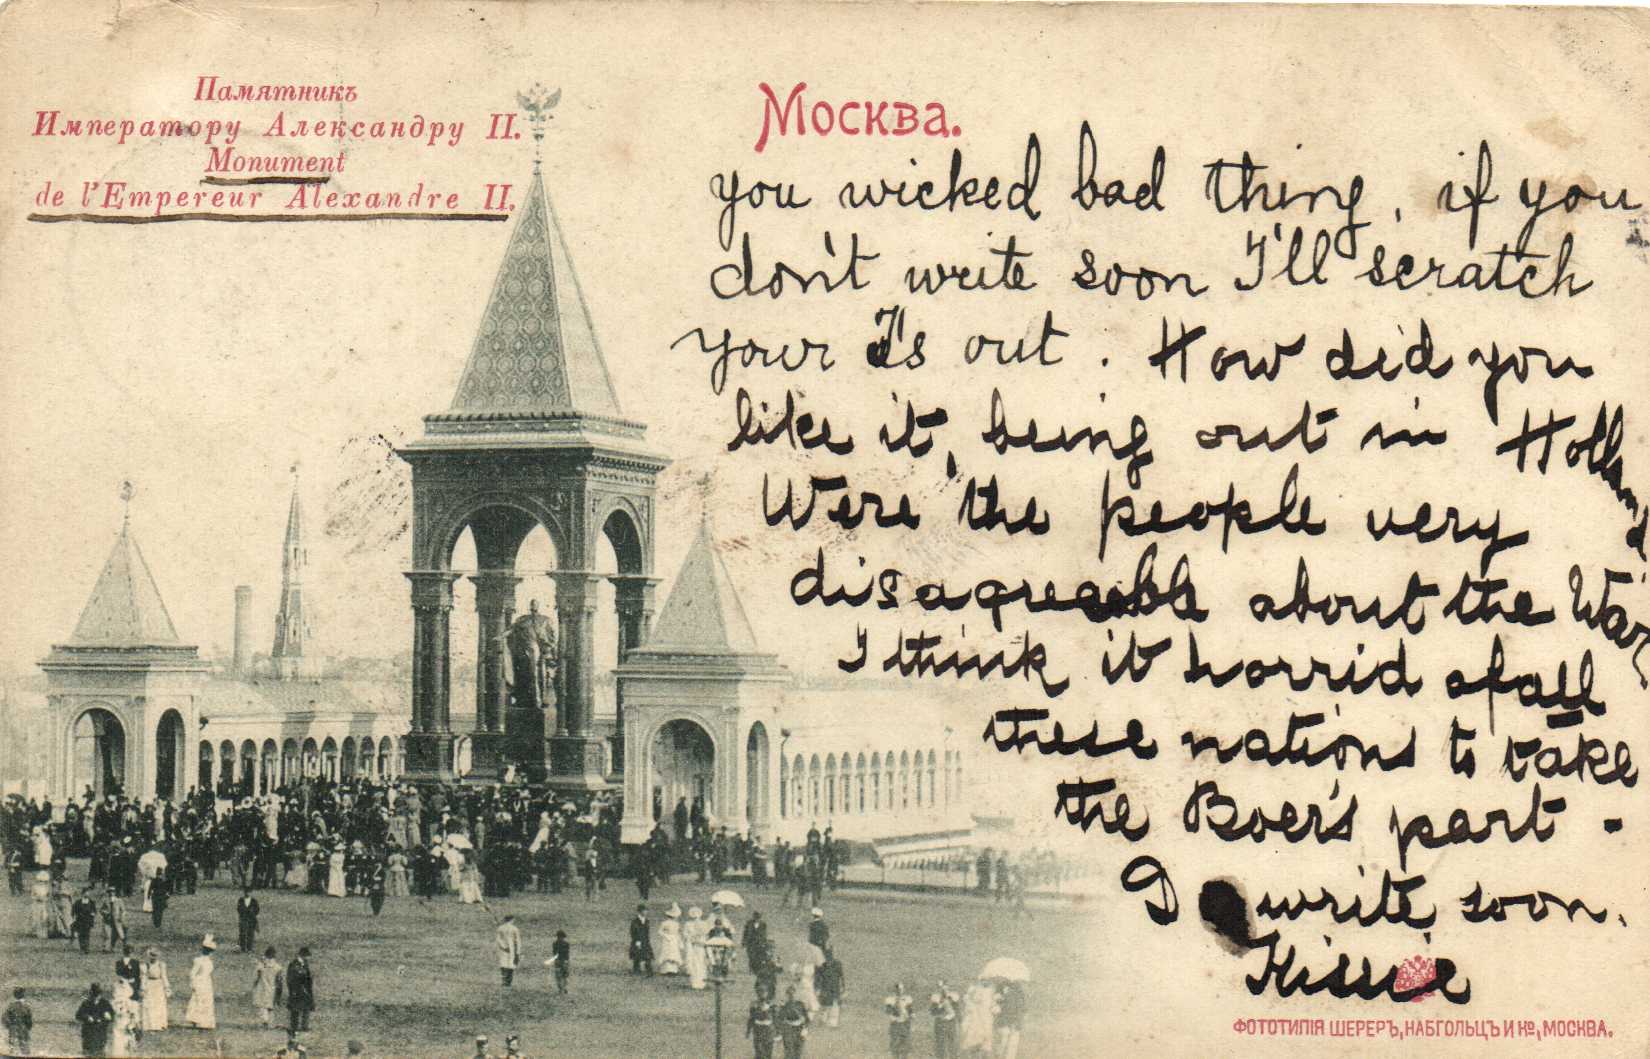 Памятникъ
Императору Александру II.
Monument
de l'Empereur Alexandre II.
Москва.
you wicked bad thing, if you
don't write soon I'll scratch
your I's out. How did you
like it, being out in Holland
Were the people very
disagreeable about the War
I think it horrid of all
these nations to take
the Boer's part.
Do write soon.
Kissie
ФОТОТИПІЯ ШЕРЕРЪ, НАБГОЛЬЦЪ И Ко, МОСКВА.